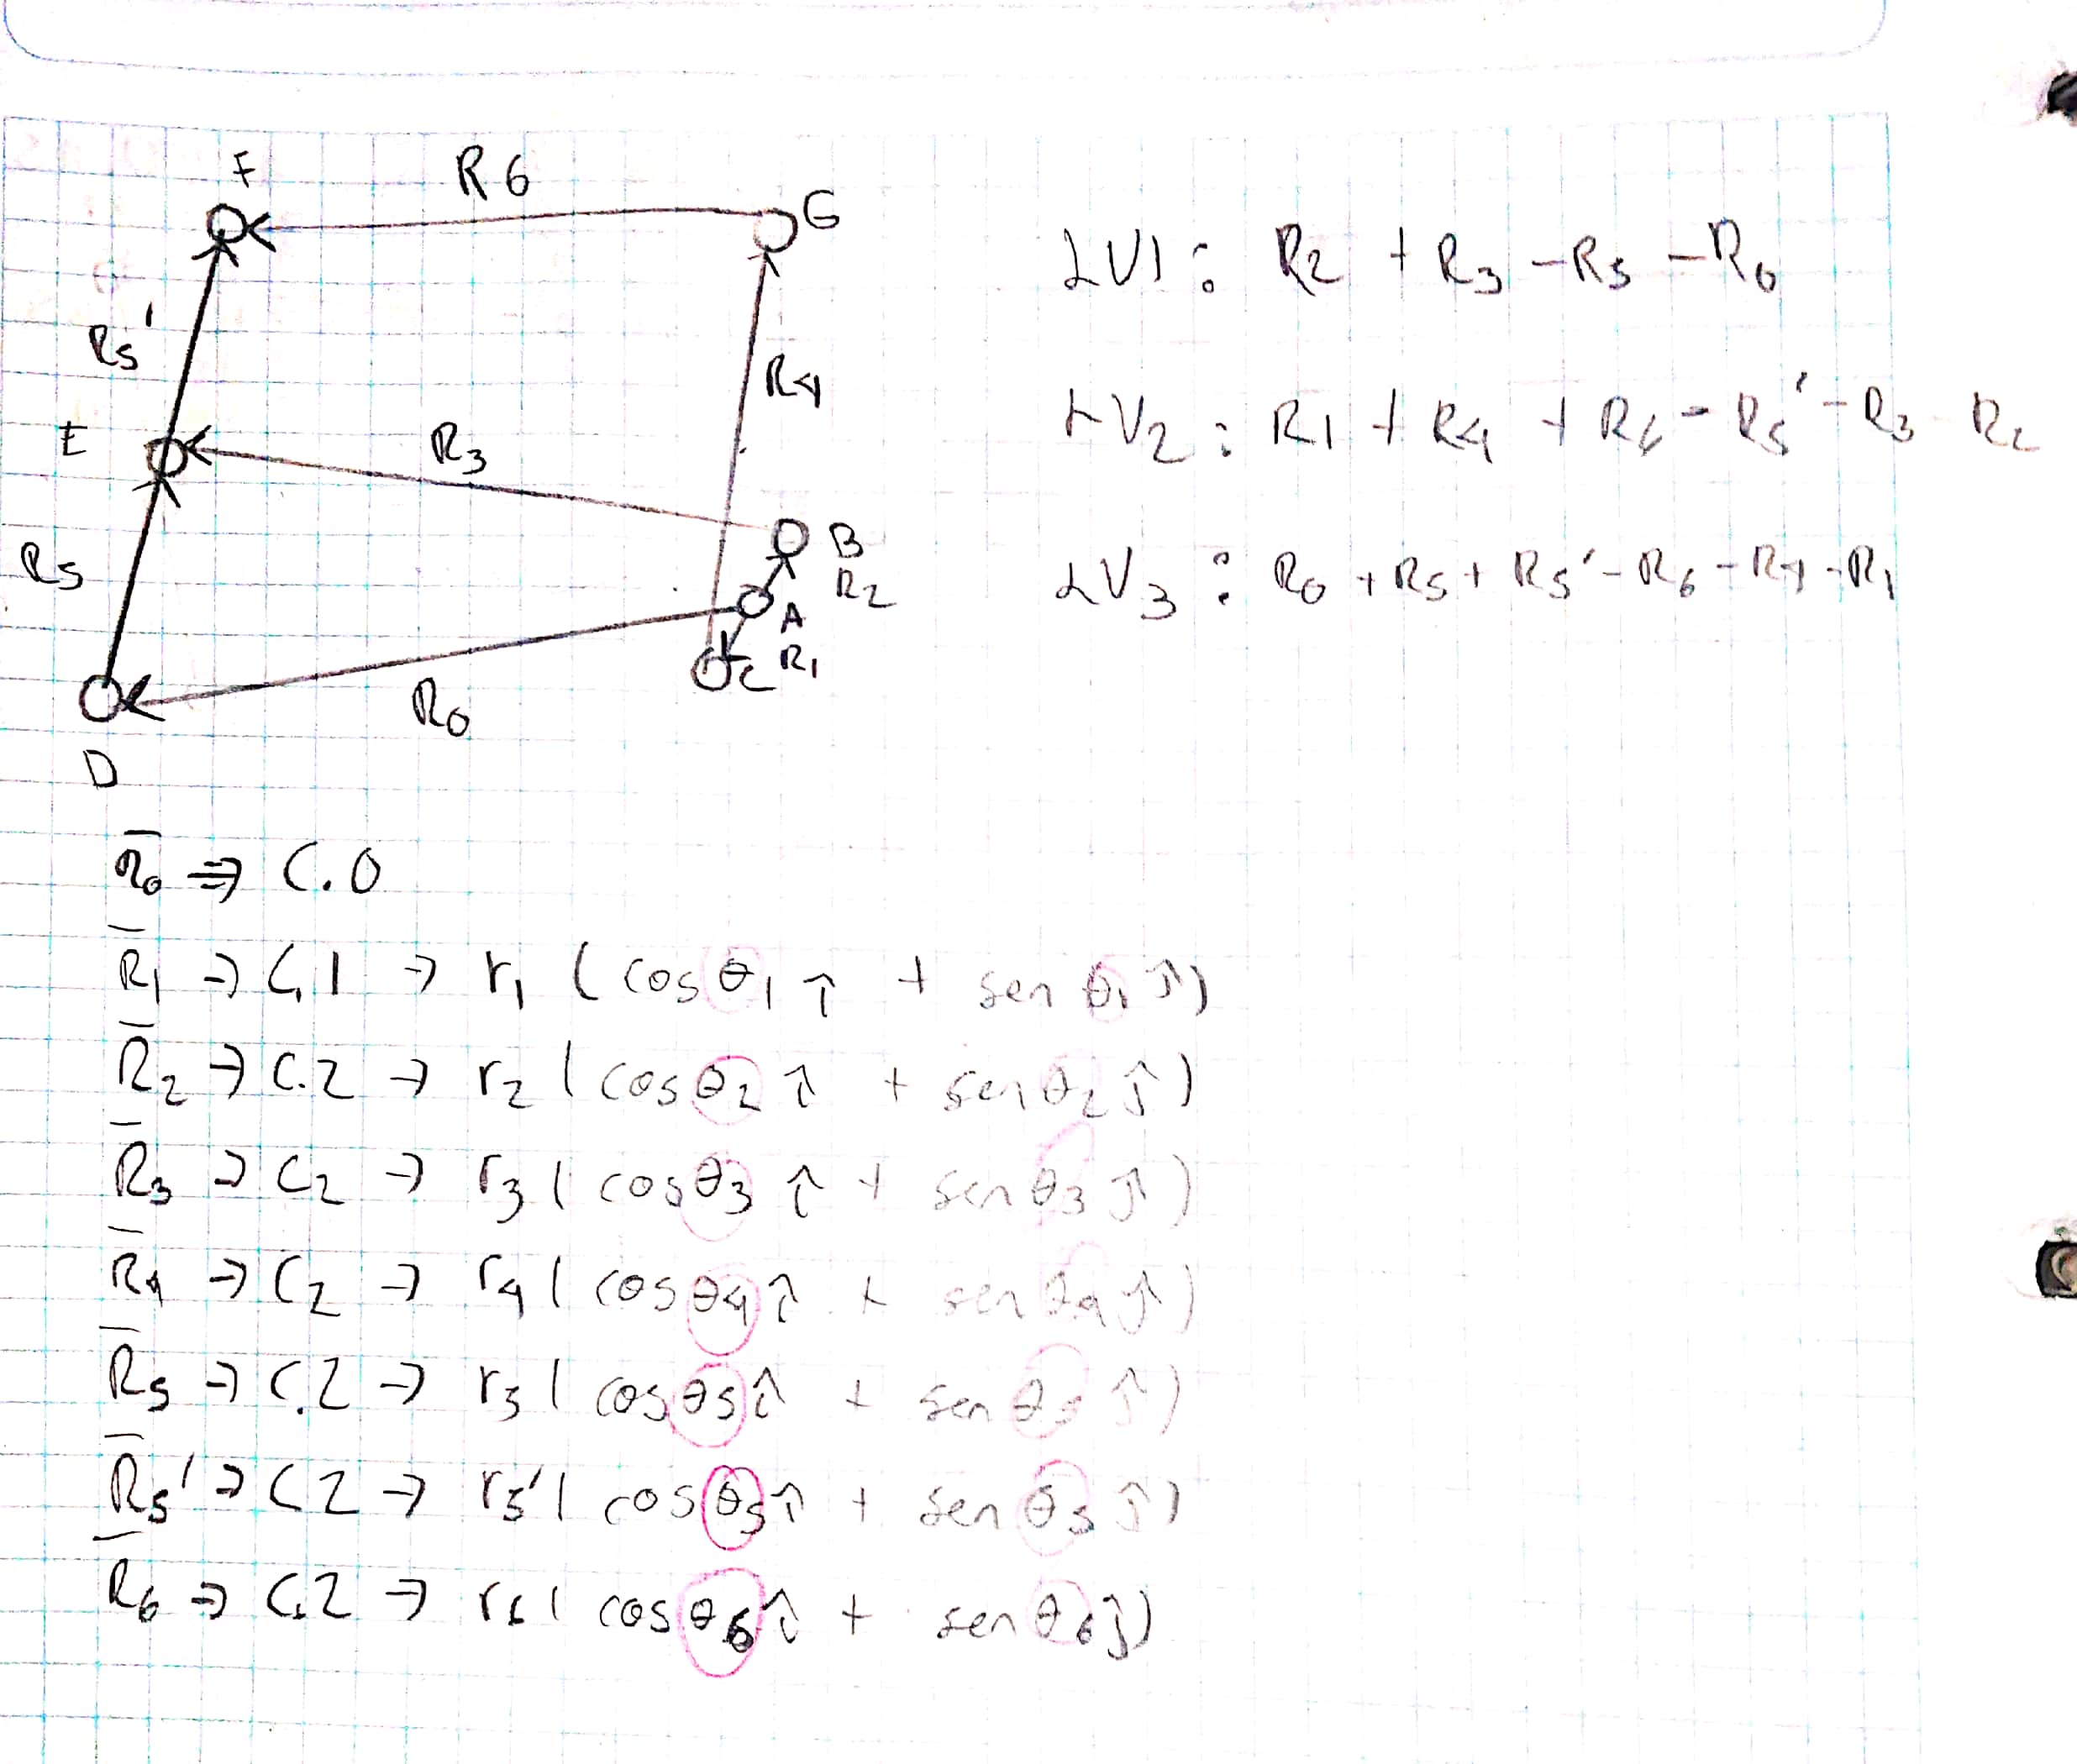 F
R6
G
R5'
R4
E
R3
B
R2
R5
A
R1
C
R0
D
LV1: R2 + R3 - R5 - R0
LV2: R1 + R4 + R6 - R5' - R3 - R2
LV3: R0 + R5 + R5' - R6 - R4 - R1
R̅0 ⇒ C.0
R̅1 ⇒ C.1 → r1 (cos θ1 î + sen θ1 ĵ)
R̅2 → C.2 → r2 (cos θ2 î + sen θ2 ĵ)
R̅3 ⇒ C2 → r3 (cos θ3 î + sen θ3 ĵ)
R̅4 ⇒ C2 → r4 (cos θ4 î + sen θ4 ĵ)
R̅5 ⇒ C.2 → r3 (cos θ5 î + sen θ5 ĵ)
R̅5' ⇒ C2 → r5' (cos θ5 î + sen θ5 ĵ)
R̅6 ⇒ C.2 → r6 (cos θ6 î + sen θ6 ĵ)